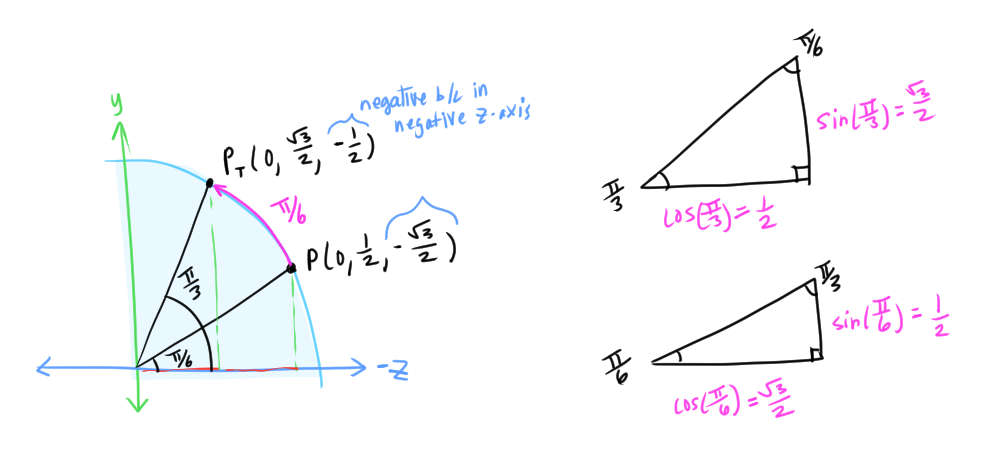 y
negative b/c in
negative z-axis
P_T(0, √3/2, -1/2)
π/6
P(0, 1/2, -√3/2)
π/3
π/6
-z
π/6
sin(π/3) = √3/2
π/3
cos(π/3) = 1/2
π/3
sin(π/6) = 1/2
π/6
cos(π/6) = √3/2